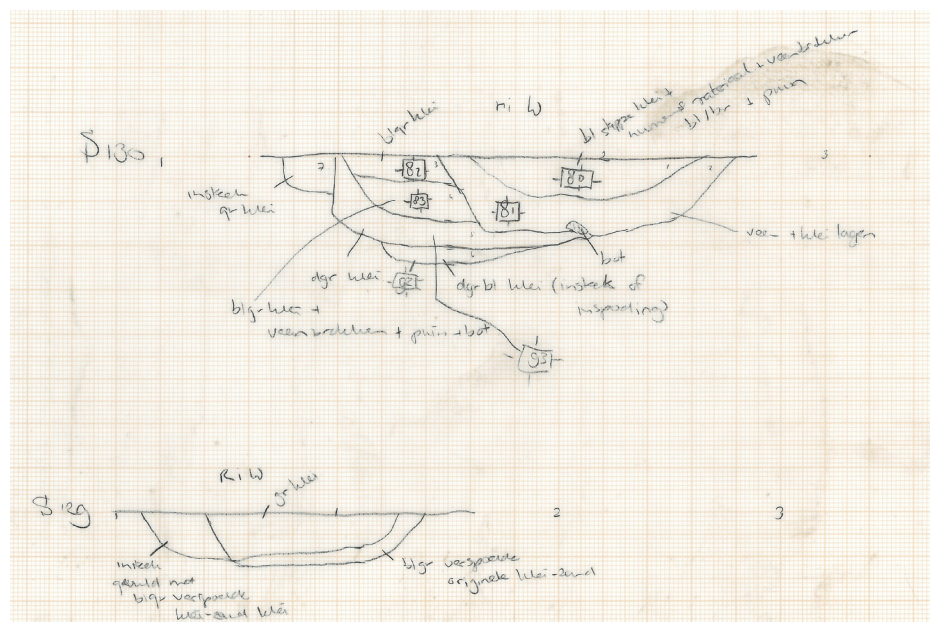 S130
RiW
blgr klei
bl stippe klei +
humeus materiaal + veenbrokken
bl/br + puin
2
3
82
80
83
81
insteek
gr klei
veen + klei lagen
bot
dgr klei
92
dgr bl klei (insteek of
inspoeling)
blgr klei +
veenbrokken + puin + bot
93
RiW
gr klei
S129
2
3
insteek
gevuld met
blgr verspoelde
klei-zand klei
blgr verspoelde
originele klei-zand